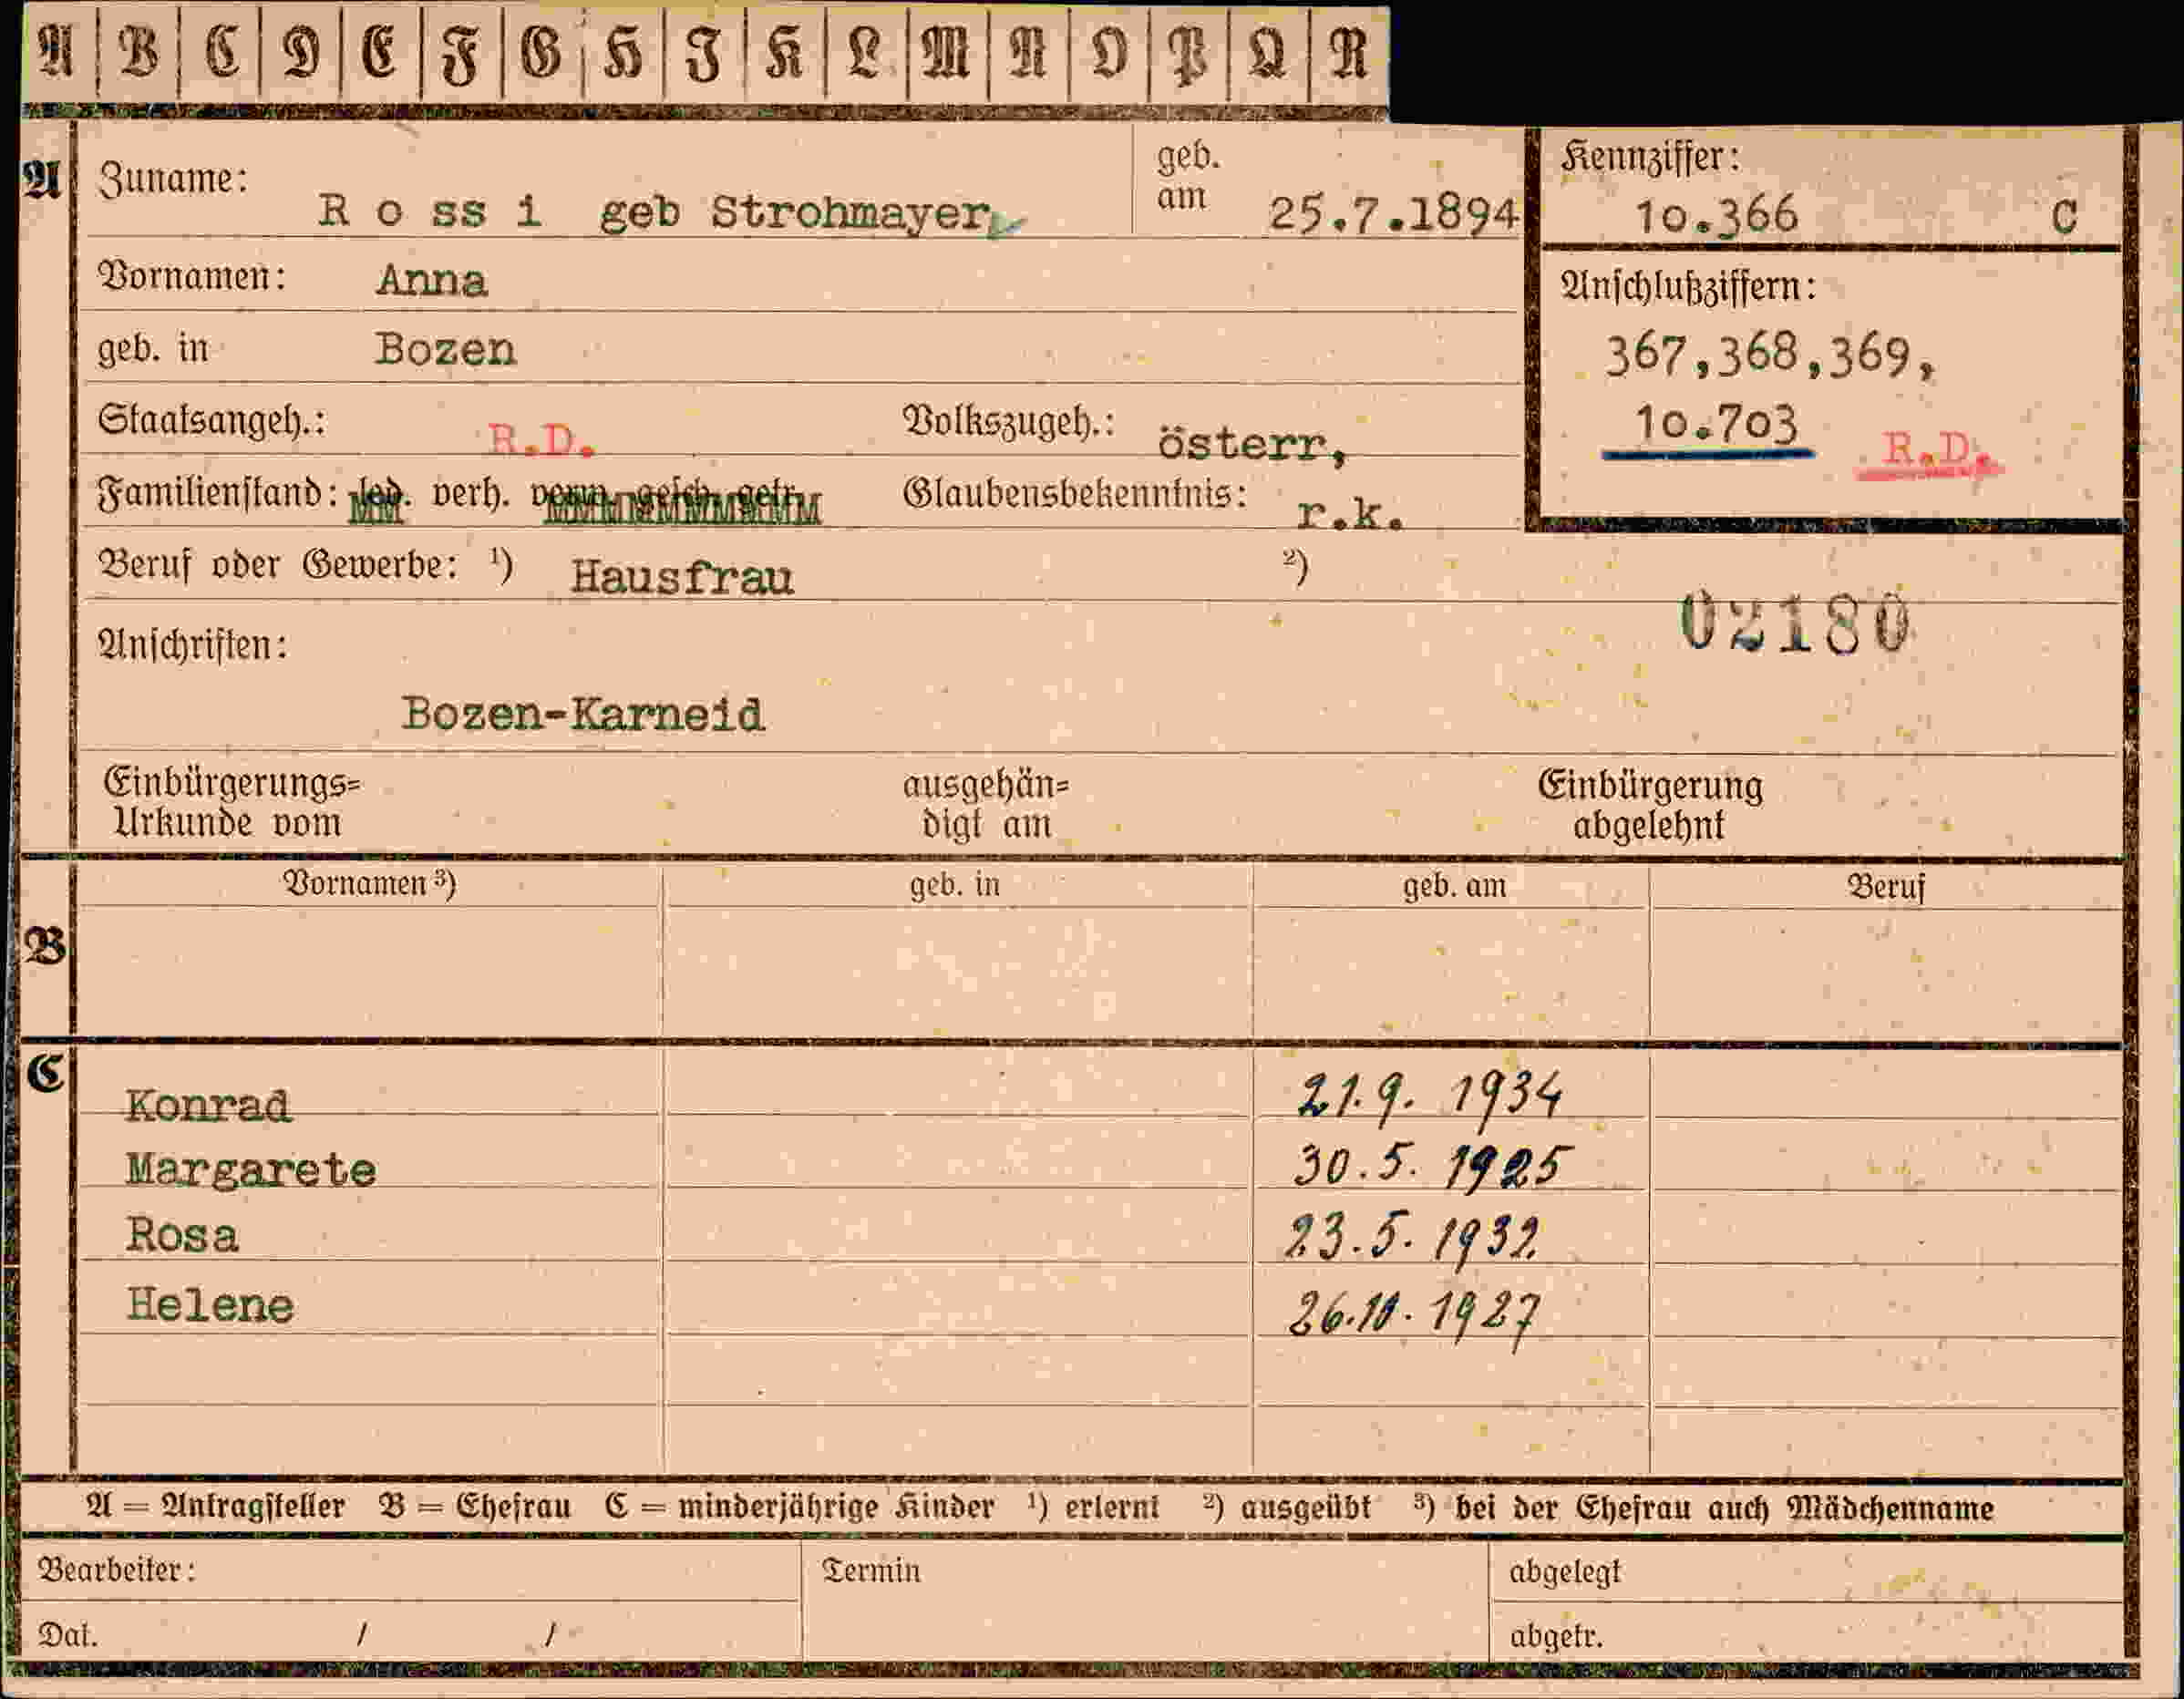 A B C D E F G H I K L M N O P Q R
A Zuname: R o ss i geb Strohmayer geb. am 25.7.1894
Kennziffer: 10.366 C
Vornamen: Anna
Anschlußziffern:
367,368,369,
10.703 R.D.
geb. in Bozen
Staatsangeh.: R.D. Volkszugeh.: österr,
Familienstand: led. verh. verw. gesch. getr. Glaubensbekenntnis: r.k.
Beruf oder Gewerbe: 1) Hausfrau 2)
02180
Anschriften:
Bozen-Karneid
Einbürgerungs=
Urkunde vom
ausgehän=
digt am
Einbürgerung
abgelehnt
Vornamen 3) geb. in geb. am Beruf
B
C
Konrad 21.9. 1934
Margarete 30.5. 1925
Rosa 23.5. 1932
Helene 26.10. 1927
A = Antragsteller B = Ehefrau C = minderjährige Kinder 1) erlernt 2) ausgeübt 3) bei der Ehefrau auch Mädchenname
Bearbeiter: Termin abgelegt
Dat. / / abgetr.